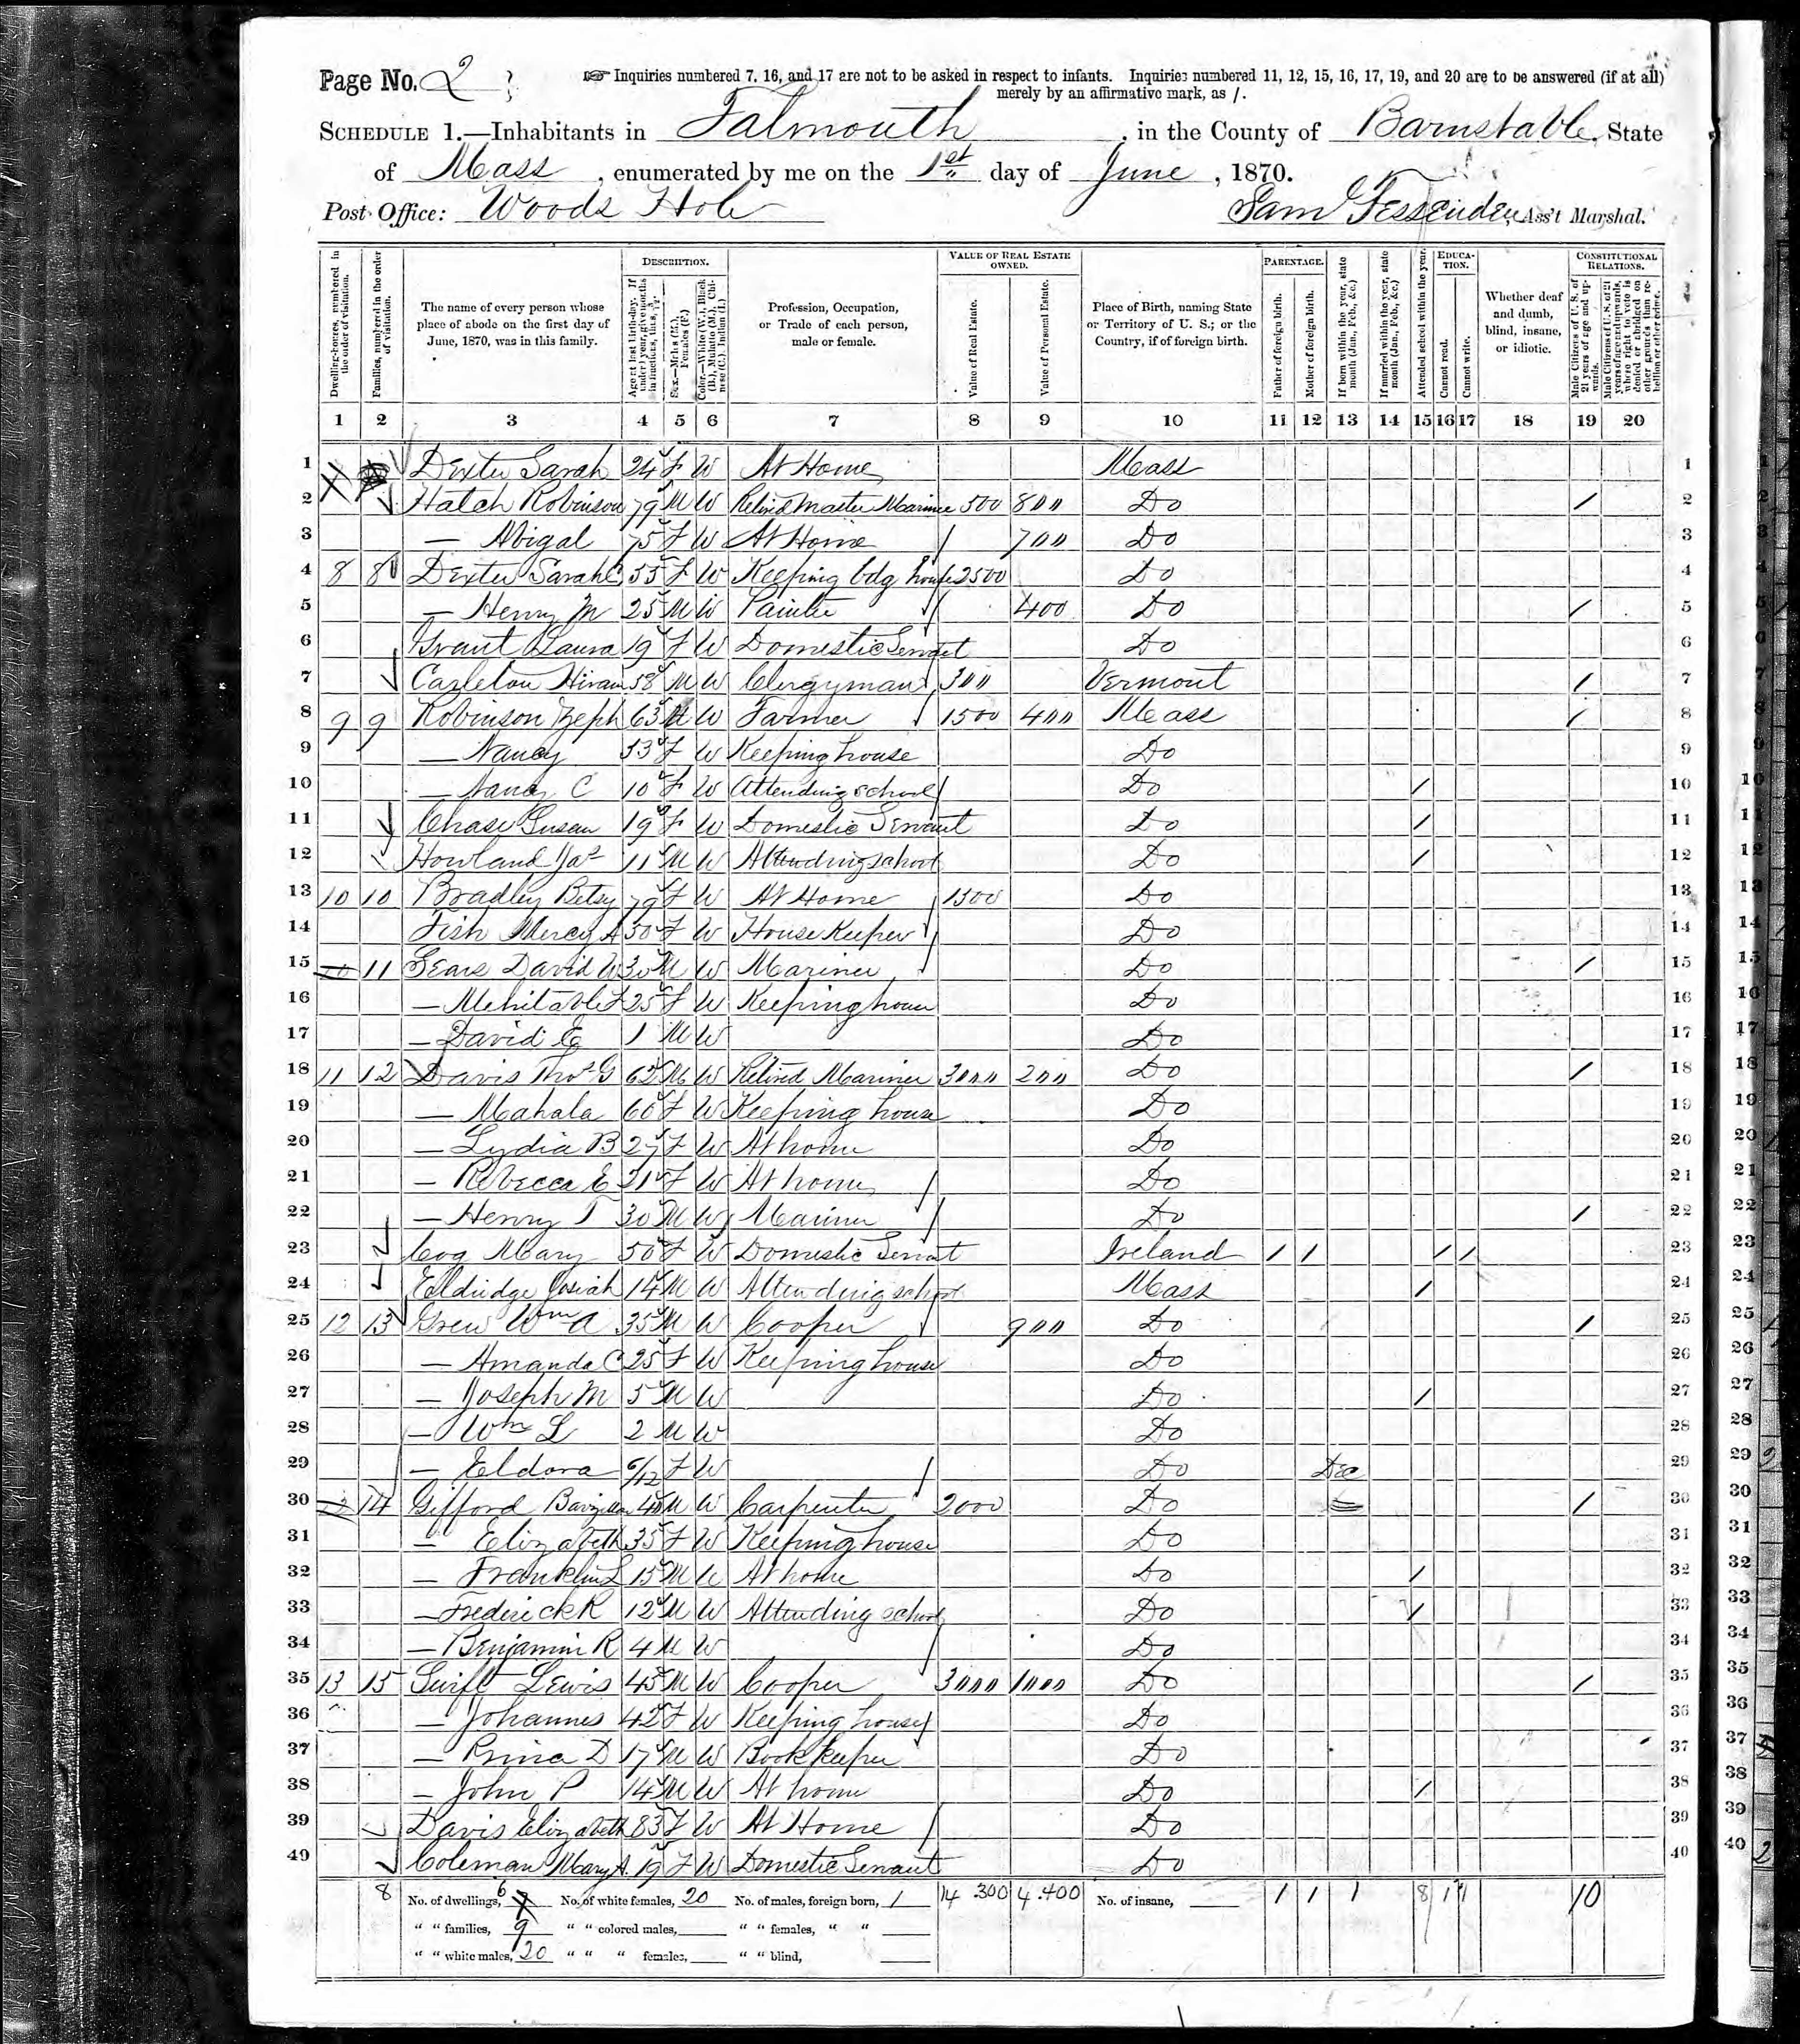 Page No. 2 ☞ Inquiries numbered 7, 16, and 17 are not to be asked in respect to infants. Inquiries numbered 11, 12, 15, 16, 17, 19, and 20 are to be answered (if at all)
merely by an affirmative mark, as /.
SCHEDULE 1.—Inhabitants in Falmouth, in the County of Barnstable, State
of Mass, enumerated by me on the 1st day of June, 1870.
Post Office: Woods Hole Sam Fessenden, Ass't Marshal.
Dwelling-houses, numbered in the order of visitation.
Families, numbered in the order of visitation.
The name of every person whose place of abode on the first day of June, 1870, was in this family.
DESCRIPTION.
Age at last birth-day. If under 1 year, give months in fractions, thus, 3/12.
Sex.—Males (M.), Females (F.)
Color.—White (W.), Black (B.), Mulatto (M.), Chinese (C.), Indian (I.)
Profession, Occupation, or Trade of each person, male or female.
VALUE OF REAL ESTATE OWNED.
Value of Real Estate.
Value of Personal Estate.
Place of Birth, naming State or Territory of U. S.; or the Country, if of foreign birth.
PARENTAGE.
Father of foreign birth.
Mother of foreign birth.
If born within the year, state month (Jan., Feb., &c.)
If married within the year, state month (Jan., Feb., &c.)
Attended school within the year.
EDUCATION.
Cannot read.
Cannot write.
Whether deaf and dumb, blind, insane, or idiotic.
CONSTITUTIONAL RELATIONS.
Male Citizens of U. S. of 21 years of age and upwards.
Male Citizens of U. S. of 21 years of age and upwards, where right to vote is denied or abridged on other grounds than rebellion or other crime.
1 2 3 4 5 6 7 8 9 10 11 12 13 14 15 16 17 18 19 20
1 Dexter Sarah 24 F W At Home Mass 1
2 Hatch Robinson 79 M W Retired Master Mariner 500 800 Do / 2
3 — Abigal 75 F W At Home 700 Do 3
4 8 8 Dexter Sarah C 55 F W Keeping bdg house 2500 Do 4
5 — Henry M 25 M W Painter 400 Do / 5
6 Grant Laura 19 F W Domestic Servant Do 6
7 Carleton Hiram 58 M W Clergyman 300 Vermont / 7
8 9 9 Robinson Zeph 63 M W Farmer 1500 400 Mass / 8
9 — Nancy 53 F W Keeping house Do 9
10 — Nancy C 10 F W Attending school Do / 10
11 Chase Susan 19 F W Domestic Servant Do / 11
12 Howland Jas 11 M W Attending school Do / 12
13 10 10 Bradley Betsy 79 F W At Home 1300 Do 13
14 Fish Mercy A 50 F W House Keeper Do 14
15 10 11 Sears David W 30 M W Mariner Do / 15
16 — Mehitable F 25 F W Keeping house Do 16
17 — David E 1 M W Do 17
18 11 12 Davis Thos G 62 M W Retired Mariner 3000 200 Do / 18
19 — Mahala 60 F W Keeping house Do 19
20 — Lydia B 27 F W At home Do 20
21 — Rebecca E 21 F W At home Do 21
22 — Henry T 30 M W Mariner Do / 22
23 Mary 50 F W Domestic Servant Ireland / / / / 23
24 Eldridge Josiah 14 M W Attending school Mass / 24
25 12 13 Grew Wm A 35 M W Cooper 900 Do / 25
26 — Amanda C 25 F W Keeping house Do 26
27 — Joseph M 5 M W Do / 27
28 — Wm L 2 M W Do 28
29 — Eldora 6/12 F W Do Dec 29
30 12 14 Gifford Barzillai 40 M W Carpenter 2000 Do / 30
31 — Elizabeth 35 F W Keeping house Do 31
32 — Franklin L 15 M W At home Do / 32
33 — Frederick R 12 M W Attending school Do / 33
34 — Benjamin R 4 M W Do 34
35 13 15 Swift Lewis 45 M W Cooper 3000 1000 Do / 35
36 — Johannes 42 F W Keeping house Do 36
37 — D 17 M W Book keeper Do 37
38 — John P 14 M W At home Do / 38
39 Davis Elizabeth 83 F W At Home Do 39
40 Coleman Mary A. 19 F W Domestic Servant Do 40
8 No. of dwellings, 6 No. of white females, 20 No. of males, foreign born, 1 14.300 4.400 No. of insane, 1 1 1 8 1 1 10
" " families, 9 " " colored males, " " females, " "
" " white males, 20 " " " females, " " blind,